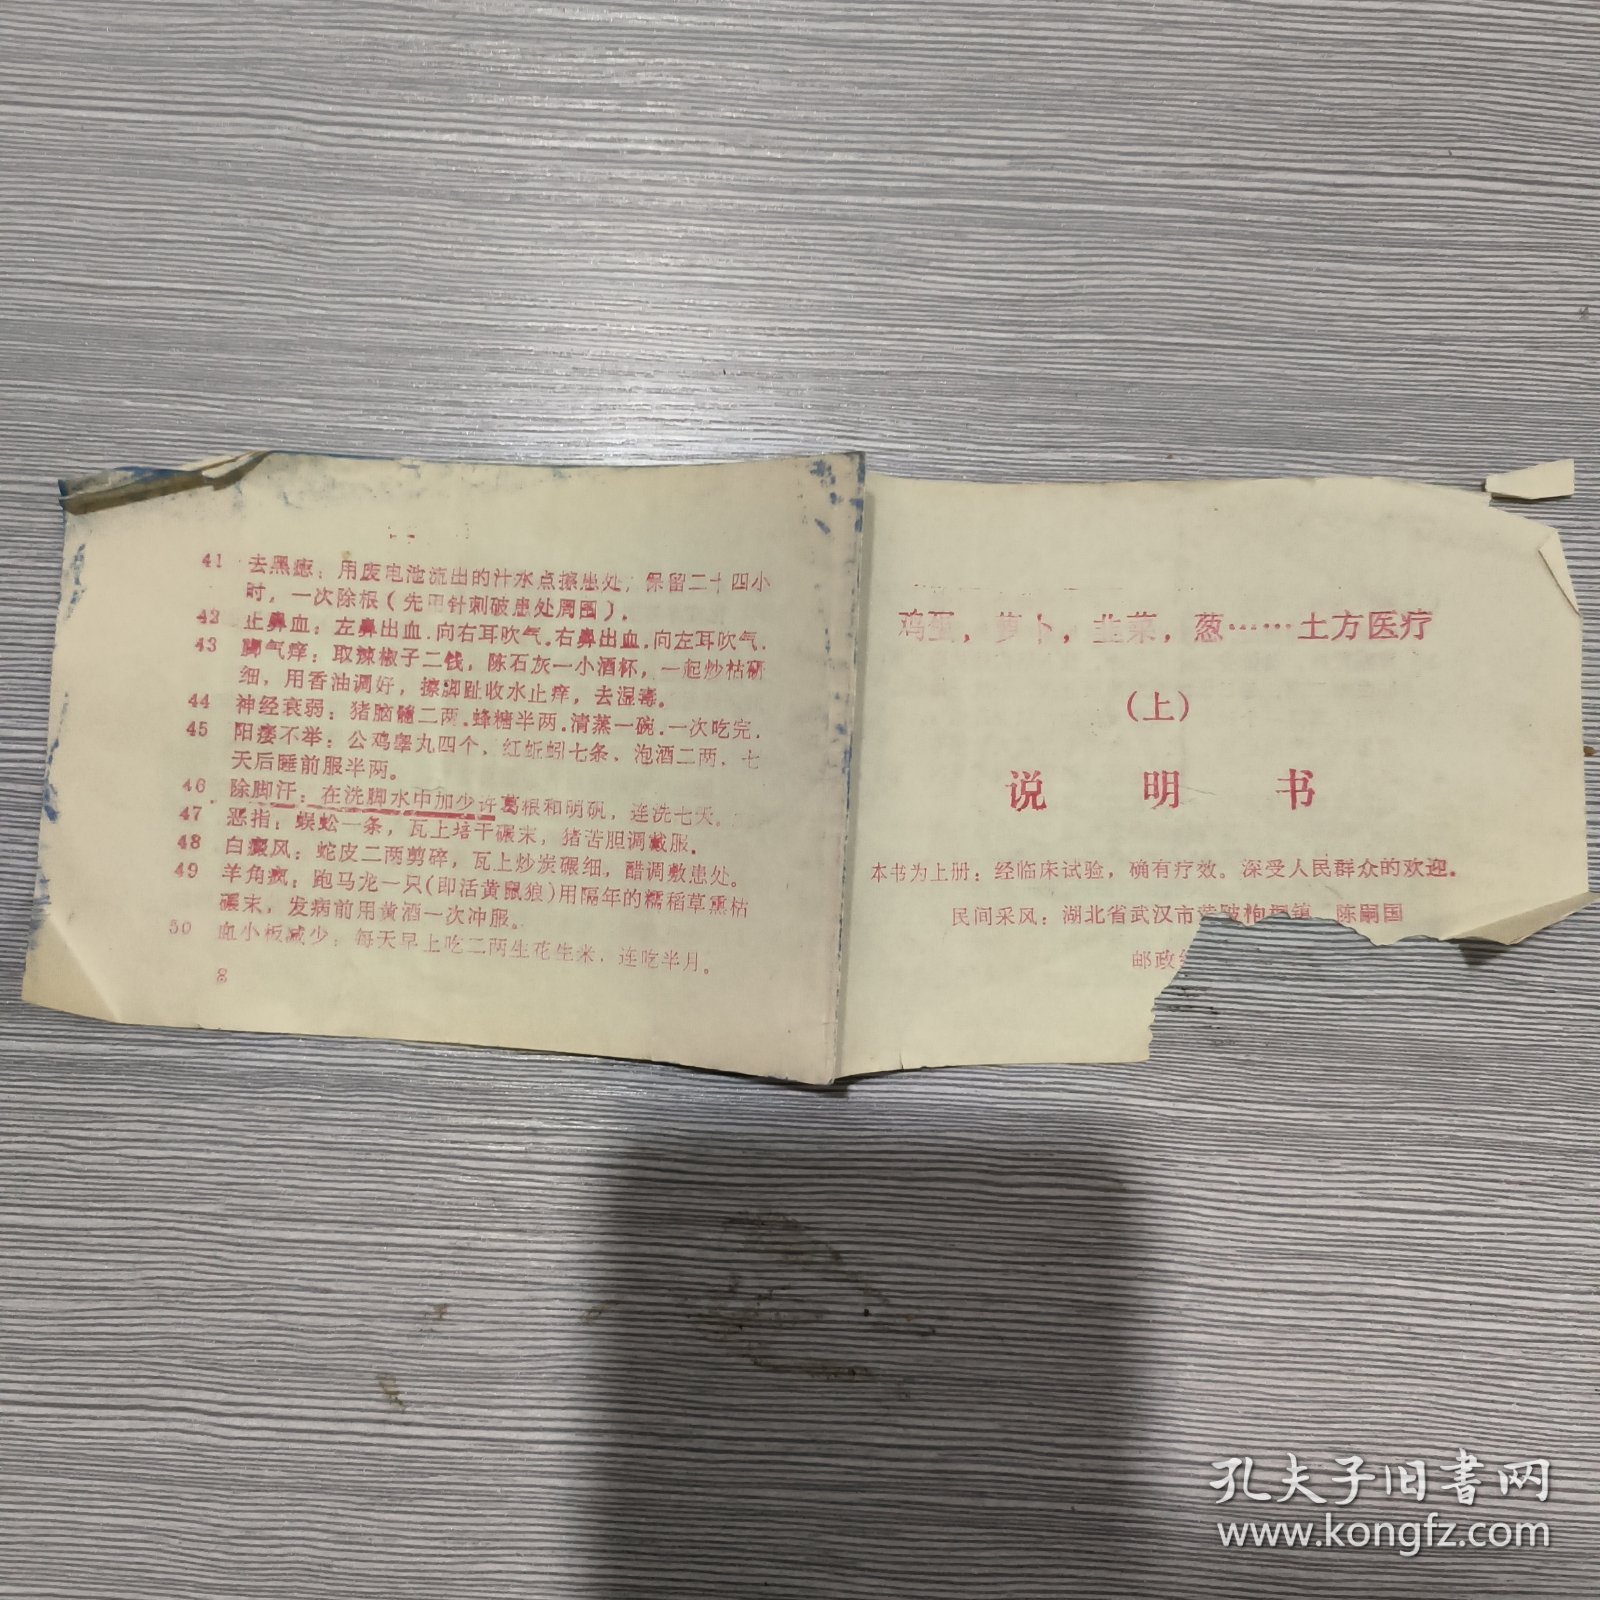 41 去黑痣：用废电池流出的汁水点擦患处，保留二十四小
时，一次除根（先用针刺破患处周围）．
42 止鼻血：左鼻出血．向右耳吹气．右鼻出血．向左耳吹气．
43 脚气痒：取辣椒子二钱，陈石灰一小酒杯，一起炒枯研
细，用香油调好，擦脚趾收水止痒，去湿毒。
44 神经衰弱：猪脑髓二两．蜂糖半两．清蒸一碗．一次吃完．
45 阳痿不举：公鸡睾丸四个，红蚯蚓七条，泡酒二两，七
天后睡前服半两。
46 除脚汗：在洗脚水中加少许葛根和明矾，连洗七天。
47 恶指：蜈蚣一条，瓦上培干碾末，猪苦胆调敷服．
48 白癜风：蛇皮二两剪碎，瓦上炒炭碾细，醋调敷患处。
49 羊角疯：跑马龙一只（即活黄鼠狼）用隔年的糯稻草熏枯
碾末，发病前用黄酒一次冲服。
50 血小板减少：每天早上吃二两生花生米，连吃半月。
8
鸡蛋，萝卜，韭菜，葱……土方医疗
（上）
说 明 书
本书为上册：经临床试验，确有疗效。深受人民群众的欢迎．
民间采风：湖北省武汉市黄陂 镇 陈嗣国
邮政
孔夫子旧书网
www.kongfz.com